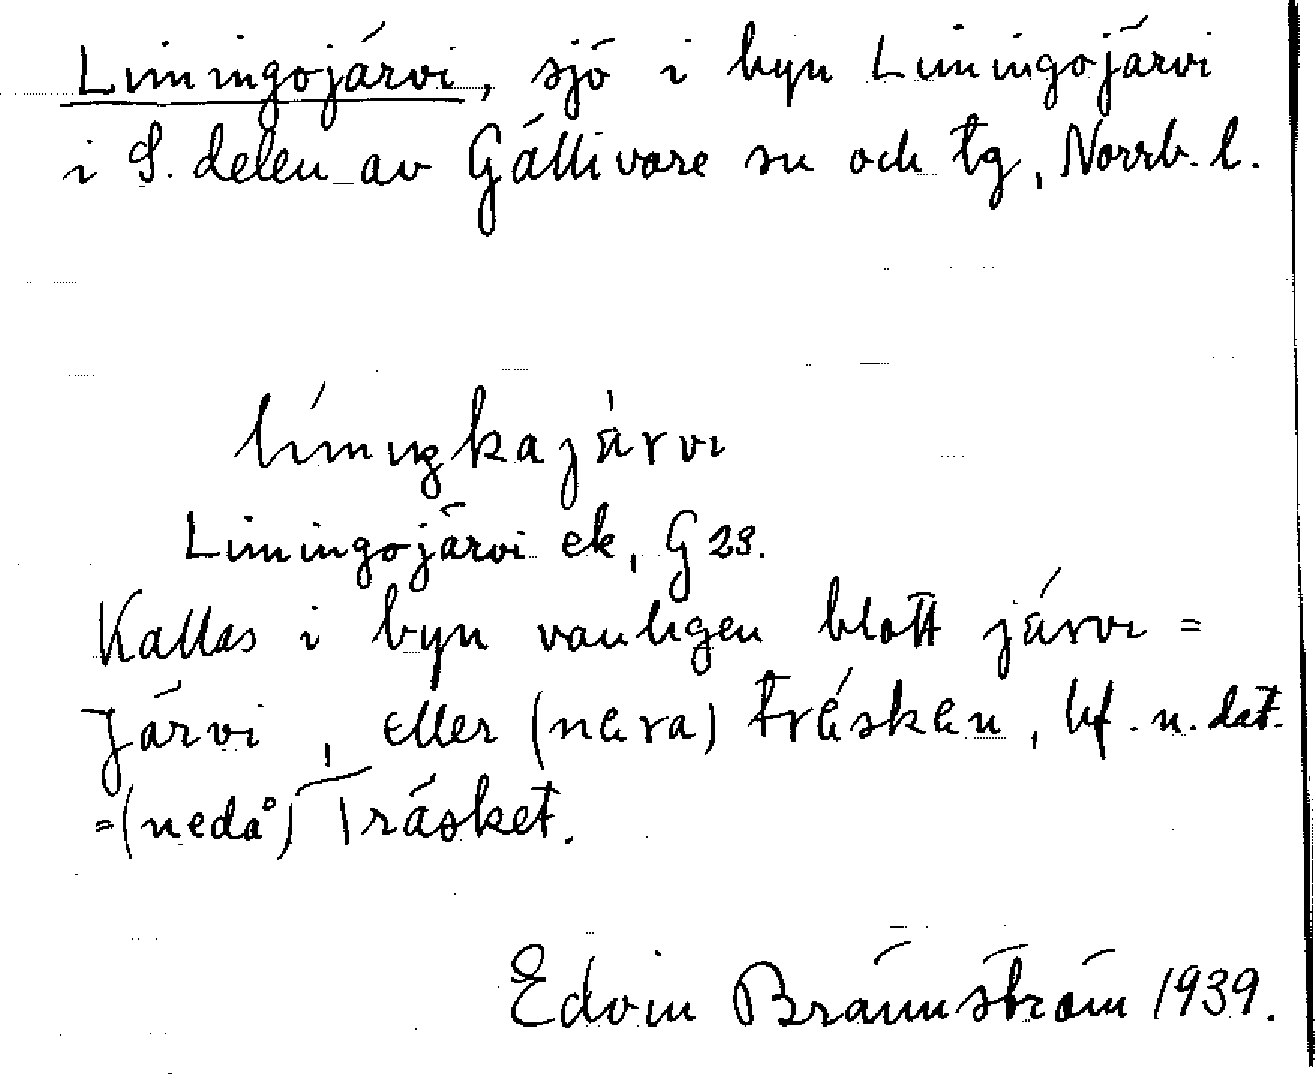 Liiningojärvi, sjö i byn Liiningojärvi
i S. delen av Gällivare sn och tg, Norrb. l.
Liiningojärvi ek, G 23.
Kallas i byn vanligen blott järvi =
Järvi, eller (nera) träsken, bf. n. dat.
= (nedå) Träsket.
Edvin Brännström 1939.